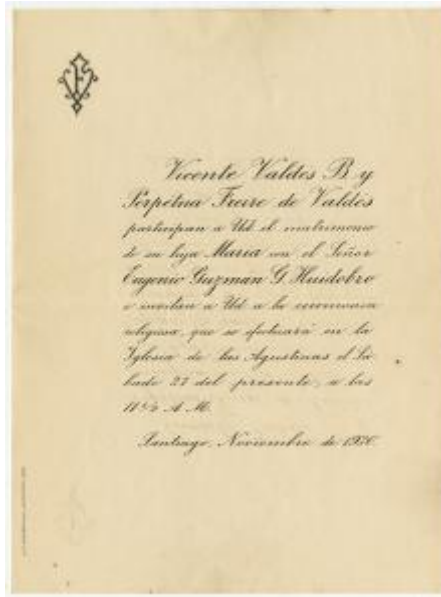 Vicente Valdes B y
Perpetua Freire de Valdés
participan a Ud el matrimonio
de su hija María con el Señor
Eugenio Guzmán G Huidobro
e invitan a Ud a la ceremonia
religiosa, que se efectuará en la
Iglesia de las Agustinas el Sá-
bado 27 del presente, a las
11½ A.M.
Santiago, Noviembre de 1920